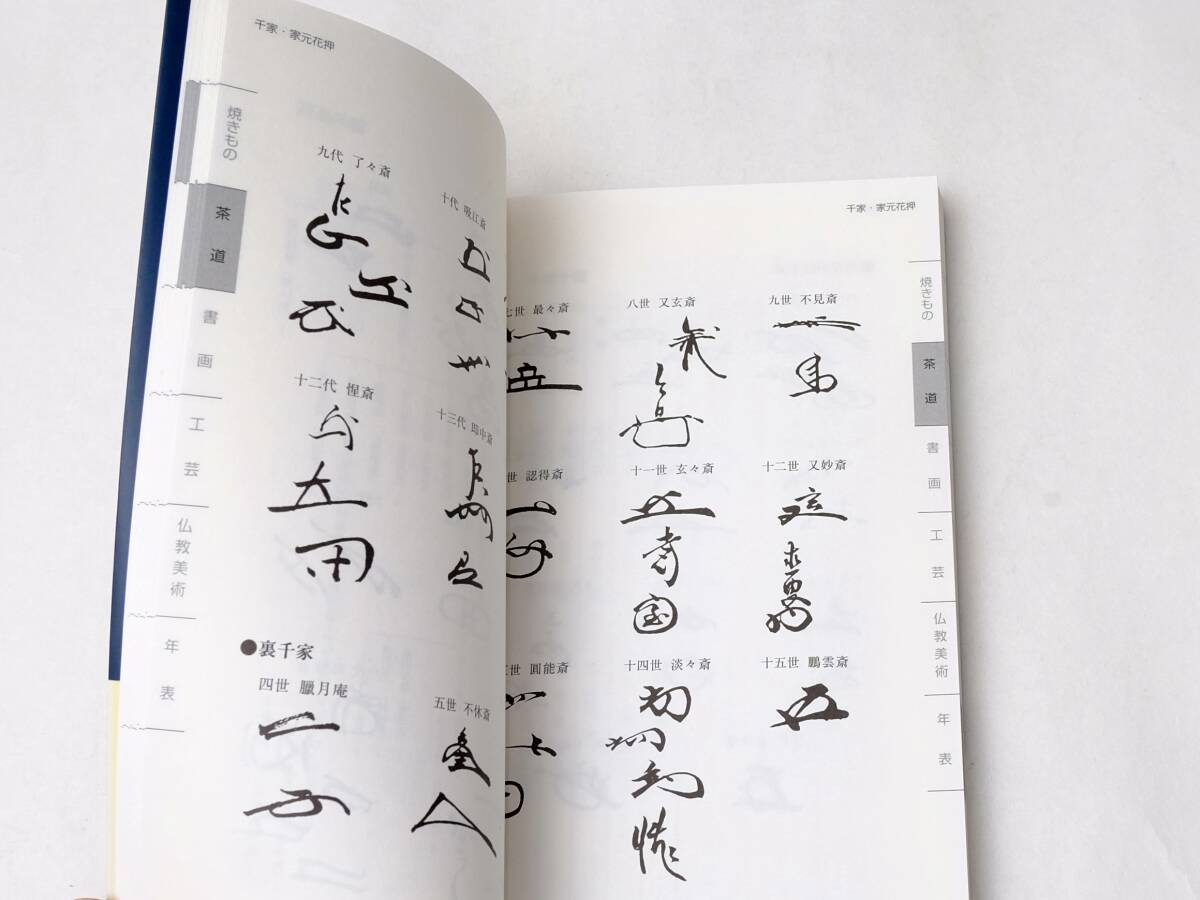 千家・家元花押
焼きもの
茶道
書画
工芸
仏教美術
年表
九代 了々斎
十代 吸江斎
十二代 惺斎
十三代 即中斎
●裏千家
四世 臘月庵
五世 不休斎
千家・家元花押
七世 最々斎
八世 又玄斎
九世 不見斎
世 認得斎
十一世 玄々斎
十二世 又妙斎
世 圓能斎
十四世 淡々斎
十五世 鵬雲斎
焼きもの
茶道
書画
工芸
仏教美術
年表